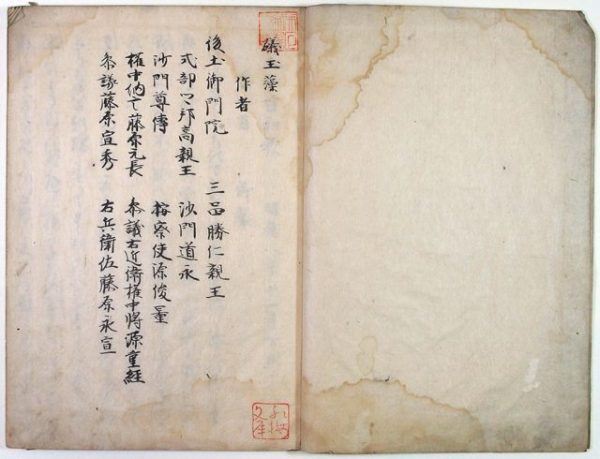 礒玉藻
作者
後土御門院　三品勝仁親王
式部卿邦高親王　沙門道永
沙門尊傳　按察使源俊量
権中納言藤原元長　参議右近衛権中将源重経
参議藤原宣秀　右兵衛佐藤原永宣
文庫